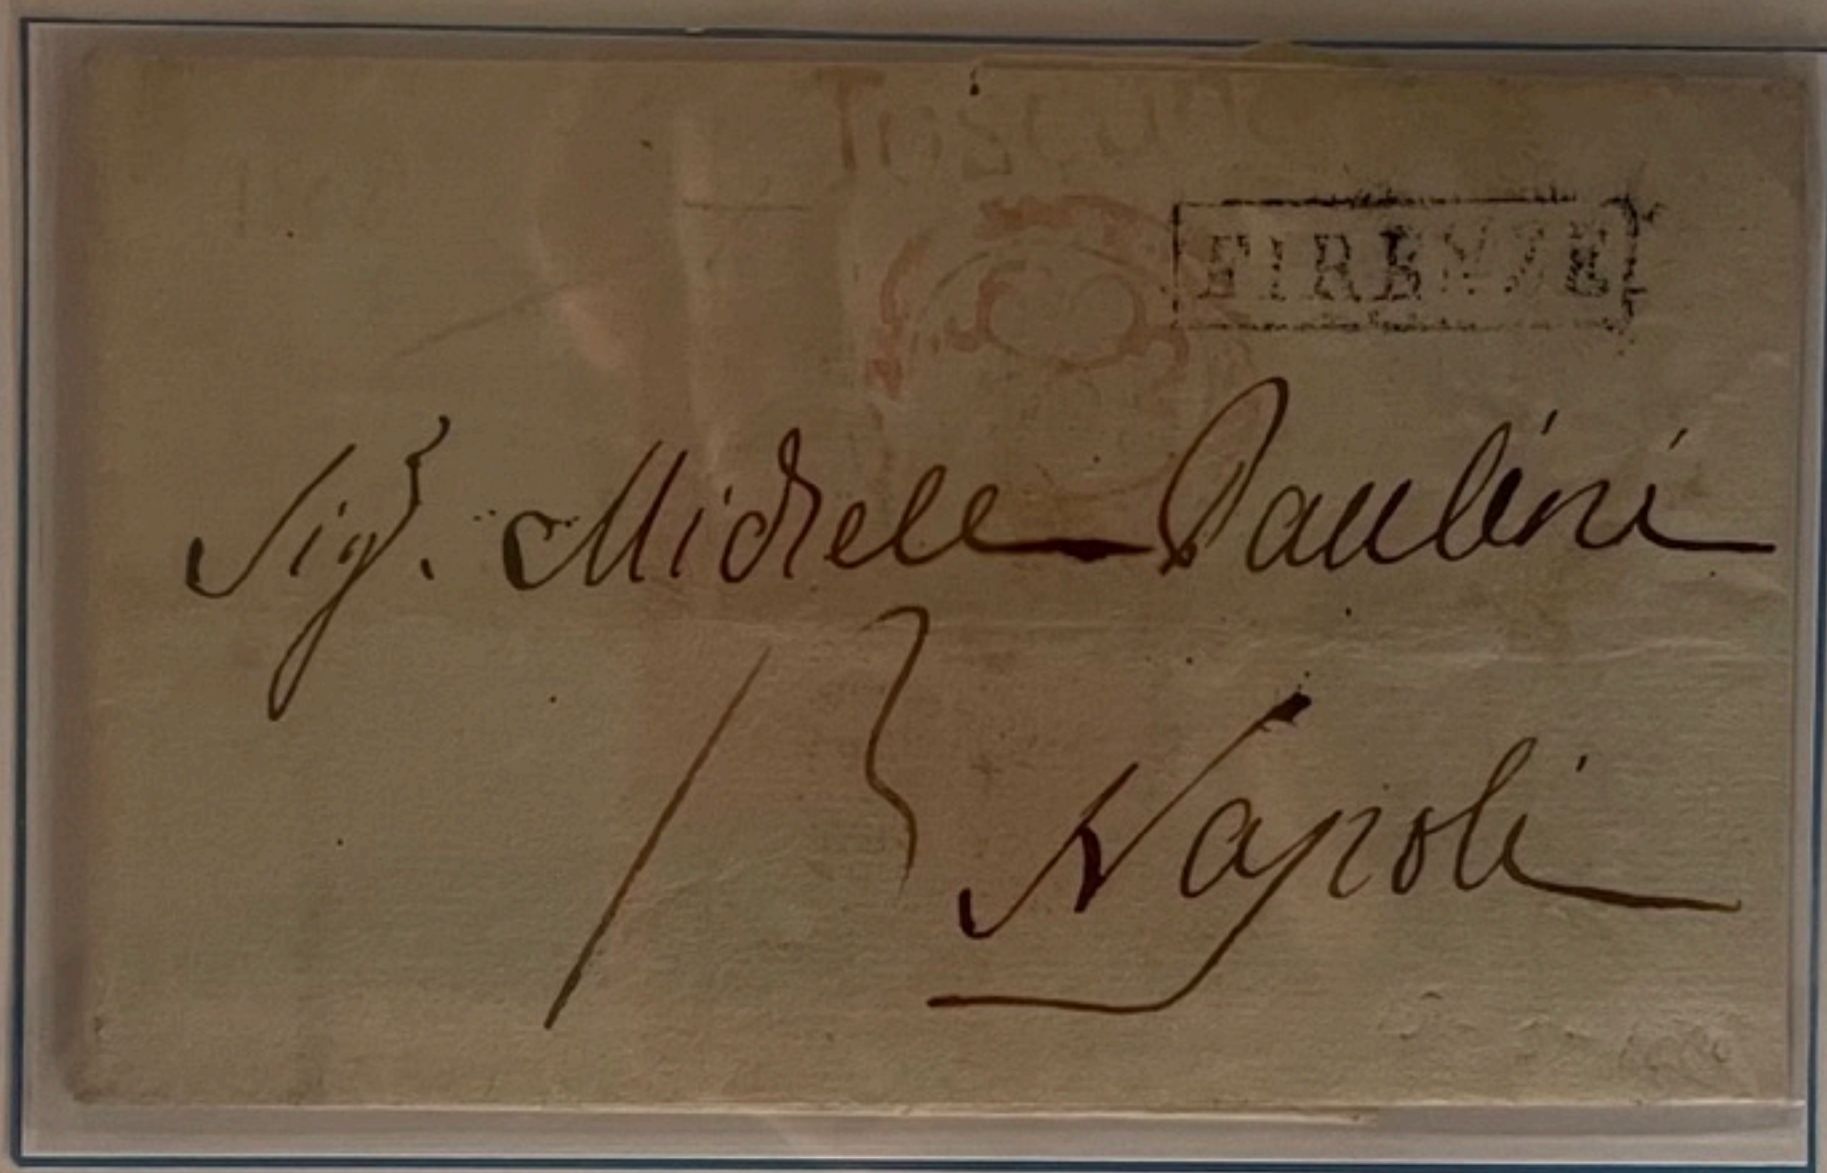 Toscana
FIRENZE
Sigr. Michele Paulini
13
Napoli